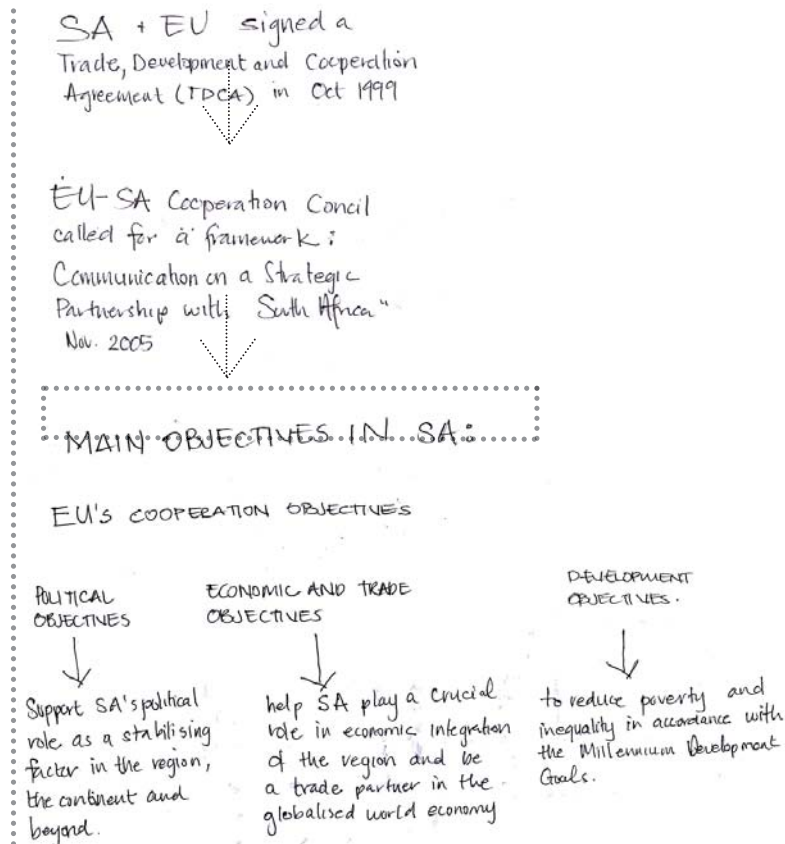 SA + EU signed a
Trade, Development and Cooperation
Agreement (TDCA) in Oct 1999
EU-SA Cooperation Concil
called for a framework:
Communication on a Strategic
Partnership with South Africa"
Nov. 2005
MAIN OBJECTIVES IN SA:
EU's COOPERATION OBJECTIVES
POLITICAL
OBJECTIVES
Support SA's political
role as a stabilising
factor in the region,
the continent and
beyond.
ECONOMIC AND TRADE
OBJECTIVES
help SA play a crucial
role in economic integration
of the region and be
a trade partner in the
globalised world economy
DEVELOPMENT
OBJECTIVES.
to reduce poverty and
inequality in accordance with
the Millennium Development
Goals.